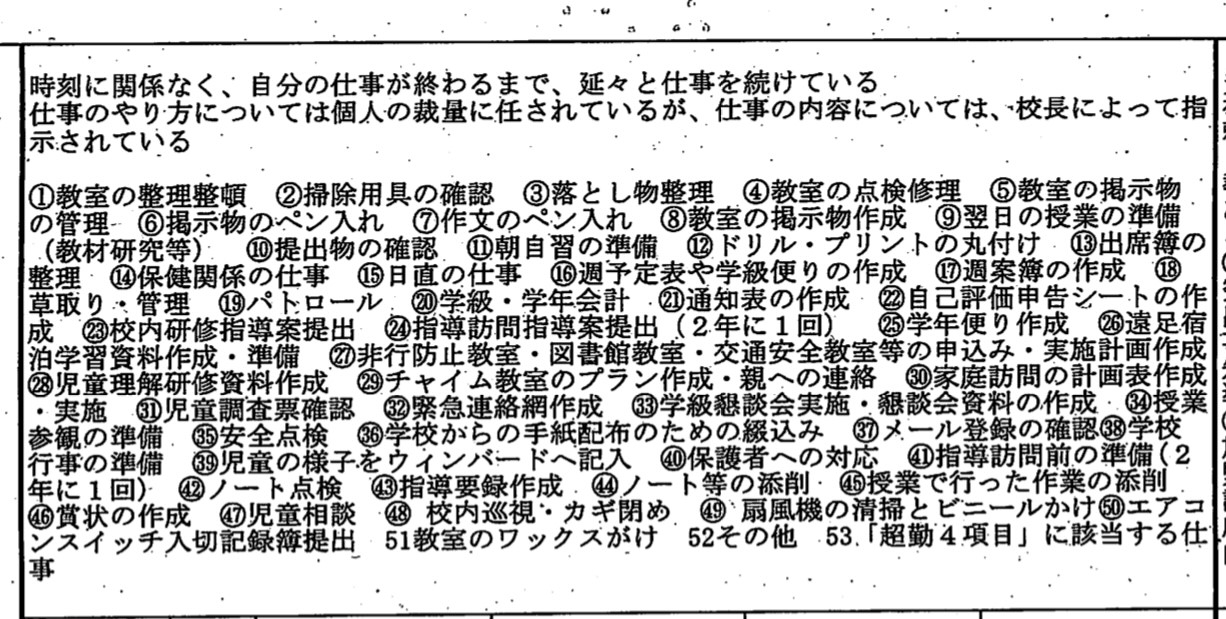 時刻に関係なく、自分の仕事が終わるまで、延々と仕事を続けている
仕事のやり方については個人の裁量に任されているが、仕事の内容については、校長によって指
示されている
①教室の整理整頓　②掃除用具の確認　③落とし物整理　④教室の点検修理　⑤教室の掲示物
の管理　⑥掲示物のペン入れ　⑦作文のペン入れ　⑧教室の掲示物作成　⑨翌日の授業の準備
（教材研究等）　⑩提出物の確認　⑪朝自習の準備　⑫ドリル・プリントの丸付け　⑬出席簿の
整理　⑭保健関係の仕事　⑮日直の仕事　⑯週予定表や学級便りの作成　⑰週案簿の作成　⑱
草取り・管理　⑲パトロール　⑳学級・学年会計　㉑通知表の作成　㉒自己評価申告シートの作
成　㉓校内研修指導案提出　㉔指導訪問指導案提出（２年に１回）　㉕学年便り作成　㉖遠足宿
泊学習資料作成・準備　㉗非行防止教室・図書館教室・交通安全教室等の申込み・実施計画作成
㉘児童理解研修資料作成　㉙チャイム教室のプラン作成・親への連絡　㉚家庭訪問の計画表作成
・実施　㉛児童調査票確認　㉜緊急連絡網作成　㉝学級懇談会実施・懇談会資料の作成　㉞授業
参観の準備　㉟安全点検　㊱学校からの手紙配布のための綴込み　㊲メール登録の確認㊳学校
行事の準備　㊴児童の様子をウィンバードへ記入　㊵保護者への対応　㊶指導訪問前の準備（２
年に１回）　㊷ノート点検　㊸指導要録作成　㊹ノート等の添削　㊺授業で行った作業の添削
㊻賞状の作成　㊼児童相談　㊽ 校内巡視・カギ閉め　㊾ 扇風機の清掃とビニールかけ㊿エアコ
ンスイッチ入切記録簿提出　51教室のワックスがけ　52その他　53「超勤４項目」に該当する仕
事